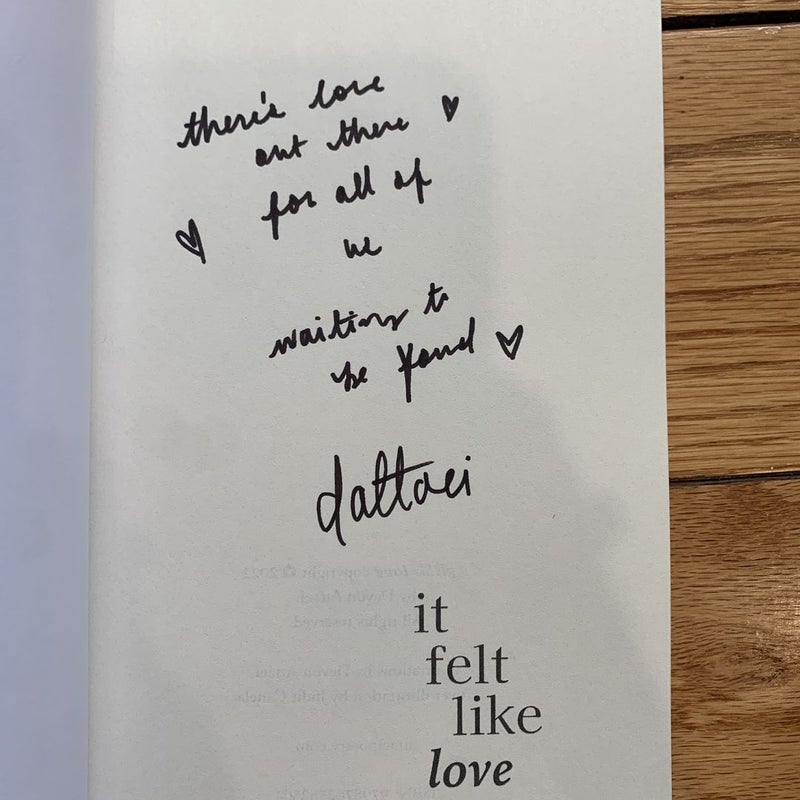 there's love
out there
for all of
us
waiting to
be found
dattaci
it
felt
like
love